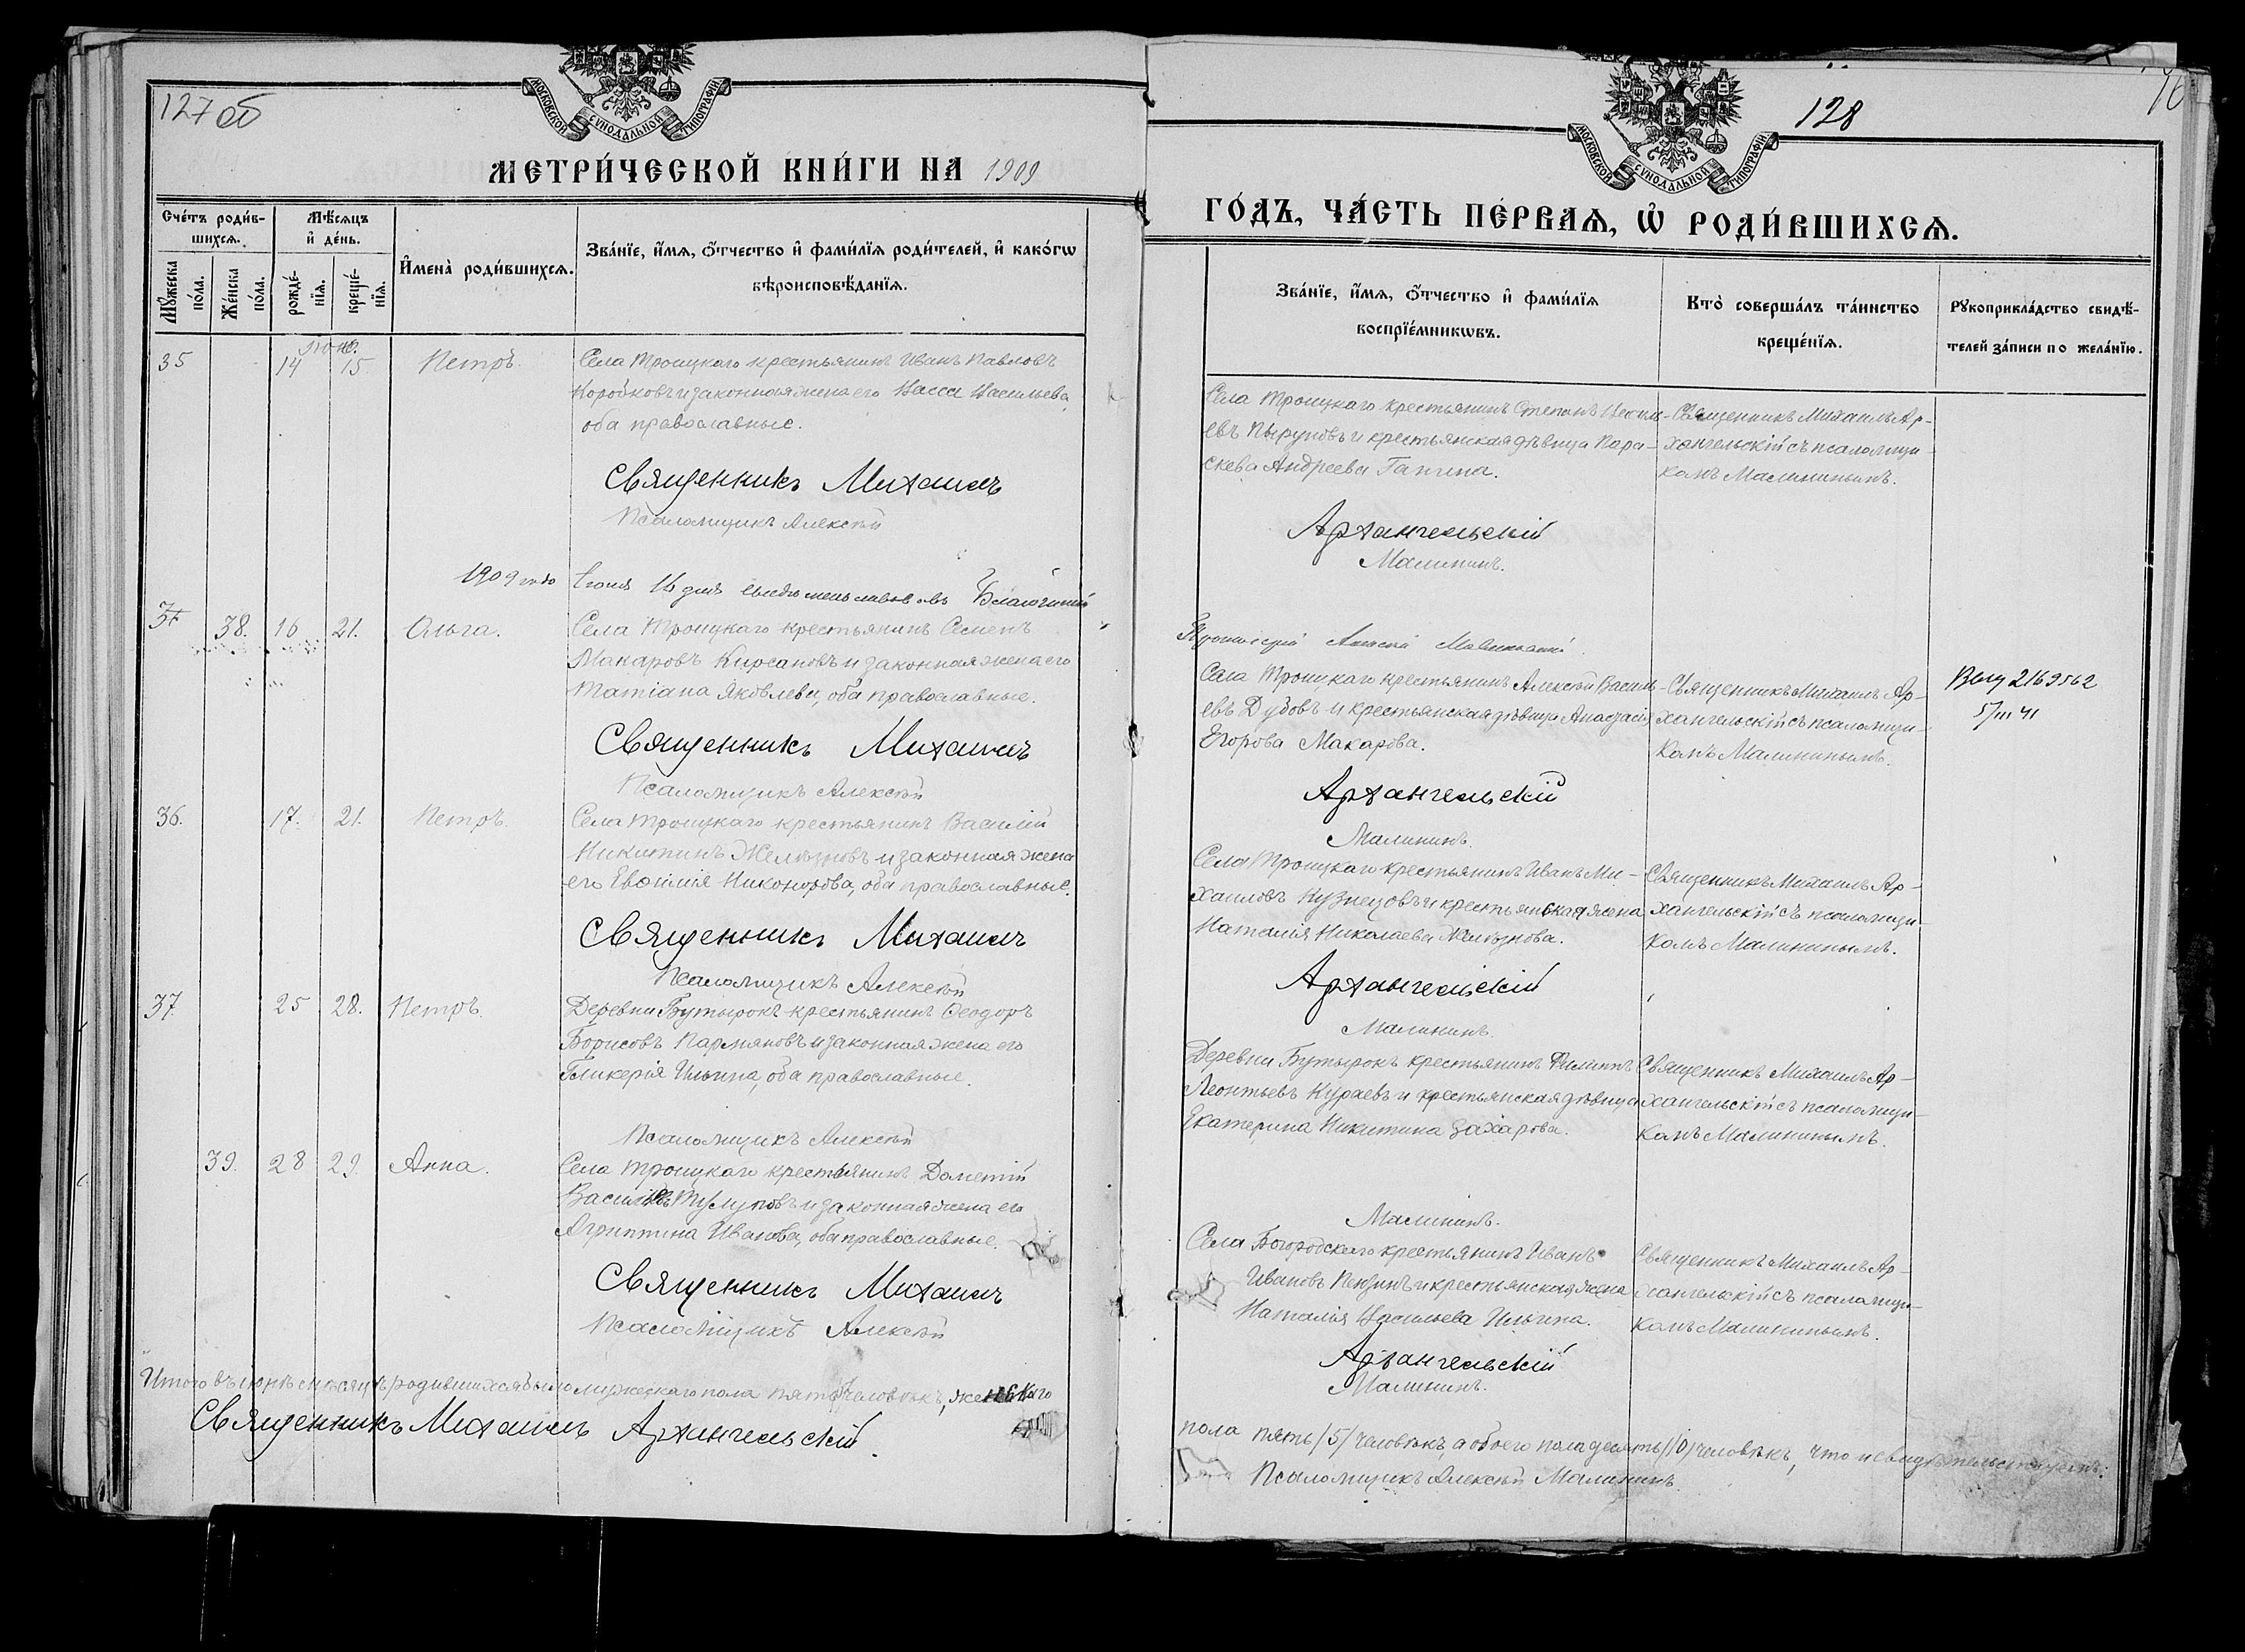 127 об
МОСКОВСКОЙ СѴНОДАЛЬНОЙ ТИПОГРАФІИ
МЕТРИ́ЧЕСКОЙ КНИ́ГИ НА 1909
Сче́тъ роди́в-
шихсѧ.
Мѣ́сѧцъ
и҆ де́нь.
И҆мена̀ роди́вшихсѧ.
Зва́нїе, и҆́мѧ, ѻ҆́тчество и҆ фами́лїѧ роди́телей, и҆ како́гѡ
вѣроисповѣ́данїѧ.
Мꙋ́жеска
по́ла.
Же́нска
по́ла.
рожде́-
нїѧ.
креще́-
нїѧ.
35 14 15 Петръ. Села Троицкаго крестьянинъ Иванъ Павловъ
Коробковъ и законная жена его Васса Васильева,
оба православные.
Священникъ Михаилъ
Псаломщикъ Алексѣй
1909 года Іюня 16 дня Благочинный
37 38. 16 21. Ольга. Села Троицкаго крестьянинъ Семенъ
Макаровъ Кирсановъ и законная жена его
Татіана Яковлева, оба православные.
Священникъ Михаилъ
Псаломщикъ Алексѣй
36. 17. 21. Петръ. Села Троицкаго крестьянинъ Василій
Никитинъ Желѣзновъ и законная жена
его Евѳимія Никонорова, оба православные.
Священникъ Михаилъ
Псаломщикъ Алексѣй
37. 25 28. Петръ. Деревни Бутырокъ крестьянинъ Ѳеодоръ
Борисовъ и законная жена его
Гликерія Ильина, оба православные.
Псаломщикъ Алексѣй
39. 28 29. Анна. Села Троицкаго крестьянинъ Дометій
Васильевъ Тулуповъ и законная жена его
Агриппина Иванова, оба православные.
Священникъ Михаилъ
Псаломщикъ Алексѣй
Итого въ іюнѣ мѣсяцѣ родившихся было мужескаго пола пять человѣкъ, женскаго
Священникъ Михаилъ Архангельскій.
128
МОСКОВСКОЙ СѴНОДАЛЬНОЙ ТИПОГРАФІИ
ГО́ДЪ, ЧА́СТЬ ПЕ́РВАѦ, Ѽ РОДИ́ВШИХСѦ.
Зва́нїе, и҆́мѧ, ѻ҆́тчество и҆ фами́лїѧ
воспрїе́мникѡвъ.
Кто̀ соверша́лъ та́инство
креще́нїѧ.
Рꙋкоприкла́дство свидѣ́-
телей за́писи по жела́нїю.
Села Троицкаго крестьянинъ Степанъ
евъ и крестьянская дѣвица Пара-
скева Андреева Ганина.
Священникъ Михаилъ Ар-
хангельскій съ псаломщи-
комъ Малининымъ.
Архангельскій
Малининъ.
Села Троицкаго крестьянинъ Алексѣй Василь-
евъ Дубовъ и крестьянская дѣвица Анастасія
Егорова Макарова.
Священникъ Михаилъ Ар-
хангельскій съ псаломщи-
комъ Малининымъ.
2169562
5/III 41
Архангельскій
Малининъ.
Села Троицкаго крестьянинъ Иванъ Ми-
хаиловъ Кузнецовъ и крестьянская жена
Наталія Николаева Желѣзнова.
Священникъ Михаилъ Ар-
хангельскій съ псаломщи-
комъ Малининымъ.
Архангельскій
Малининъ.
Деревни Бутырокъ крестьянинъ Филиппъ
Леонтьевъ Кураевъ и крестьянская дѣвица
Екатерина Никитина Захарова.
Священникъ Михаилъ Ар-
хангельскій съ псаломщи-
комъ Малининымъ.
Малининъ.
Села Богородскаго крестьянинъ Иванъ
Ивановъ Пензинъ и крестьянская жена
Наталія Васильева Ильина.
Священникъ Михаилъ Ар-
хангельскій съ псаломщи-
комъ Малининымъ.
Архангельскій
Малининъ.
пола пять /5/ человѣкъ, а обоего пола десять /10/ человѣкъ, что и свидѣтельствуемъ:
Псаломщикъ Алексѣй Малининъ.